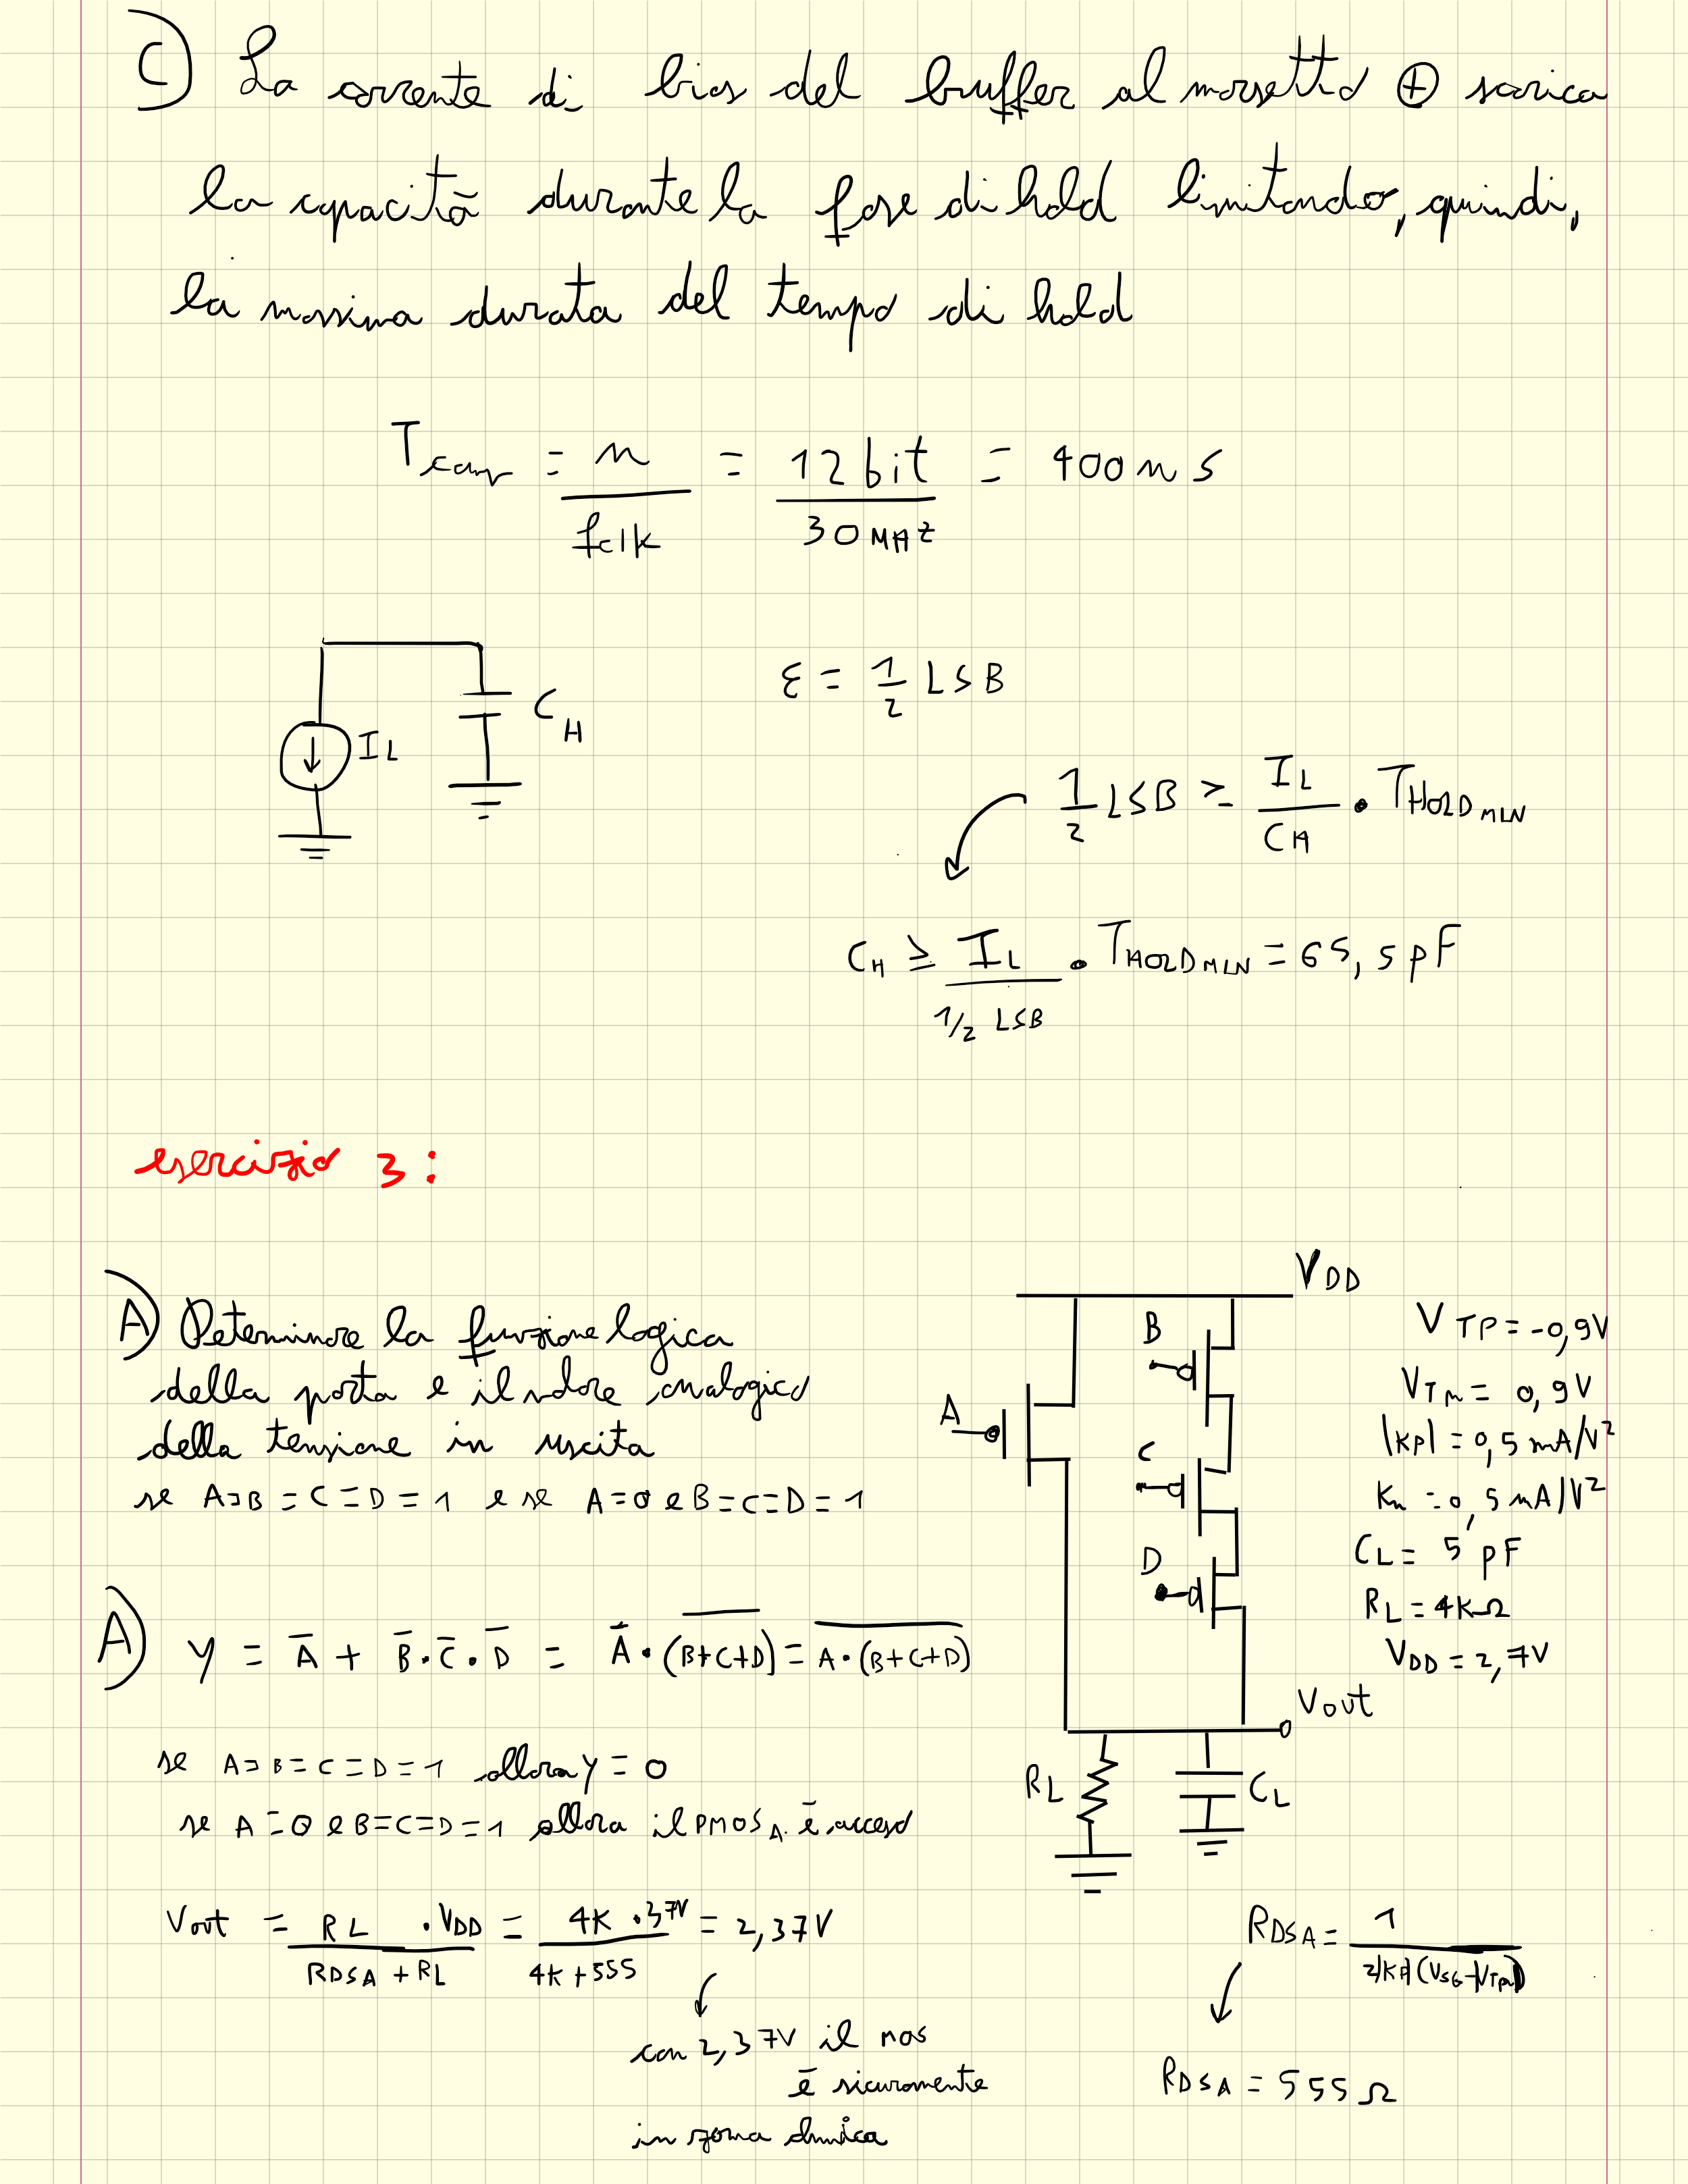 C) La corrente di bias del buffer al morsetto ⊕ scarica
la capacità durante la fase di hold limitando, quindi,
la massima durata del tempo di hold
Tcamp = n / fclk = 12 bit / 30 MHz = 400 ns
IL
CH
ε = 1/2 LSB
1/2 LSB ≥ IL / CH • THOLDMIN
CH ≥ IL / 1/2 LSB • THOLDMIN = 65,5 pF
esercizio 3:
A) Determinare la funzione logica
della porta e il valore analogico
della tensione in uscita
se A=B=C=D=1 e se A=0 e B=C=D=1
VDD
A
B
C
D
Vout
RL
CL
VTP = -0,9V
VTn = 0,9V
|KP| = 0,5 mA/V²
Kn = 0,5 mA/V²
CL = 5 pF
RL = 4KΩ
VDD = 2,7V
A) Y = A̅ + B̅·C̅·D̅ = A̅·(\overline{B+C+D}) = \overline{A·(B+C+D)}
se A=B=C=D=1 allora Y=0
se A=0 e B=C=D=1 allora il PMOSA è acceso
Vout = RL / (RDSA + RL) · VDD = 4K / (4K+555) · 3,7V = 2,37V
con 2,37V il mos
è sicuramente
in zona ohmica
RDSA = 1 / 2|KP|(VSG-|VTP|)
RDSA = 555 Ω